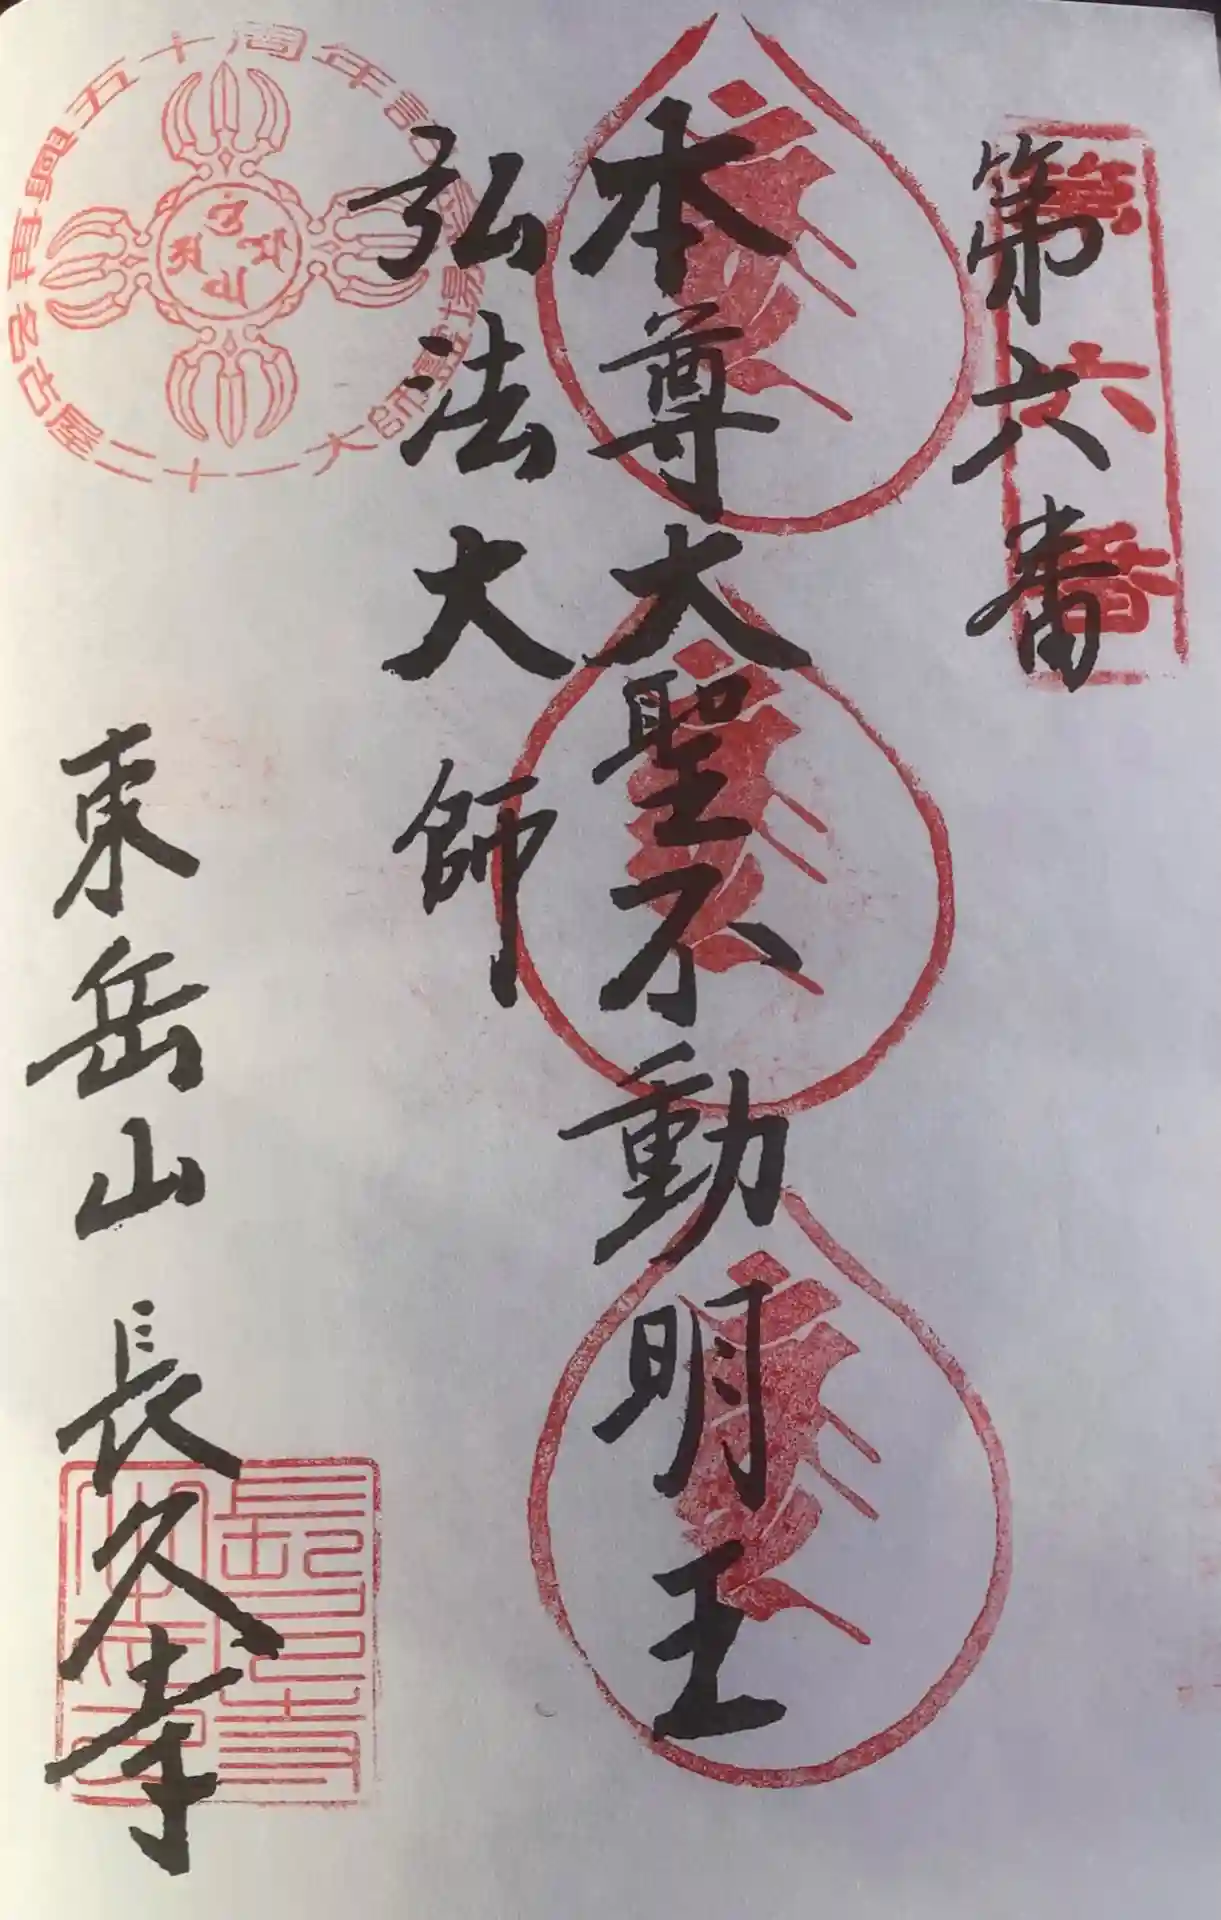 第六番
第六番
本尊大聖不動明王
弘法大師
東岳山 長久寺
名古屋二十一大師霊場
五十周年記